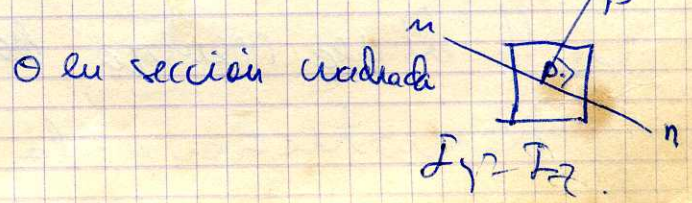 n
p
Θ en sección cuadrada
n
I_y = I_z.